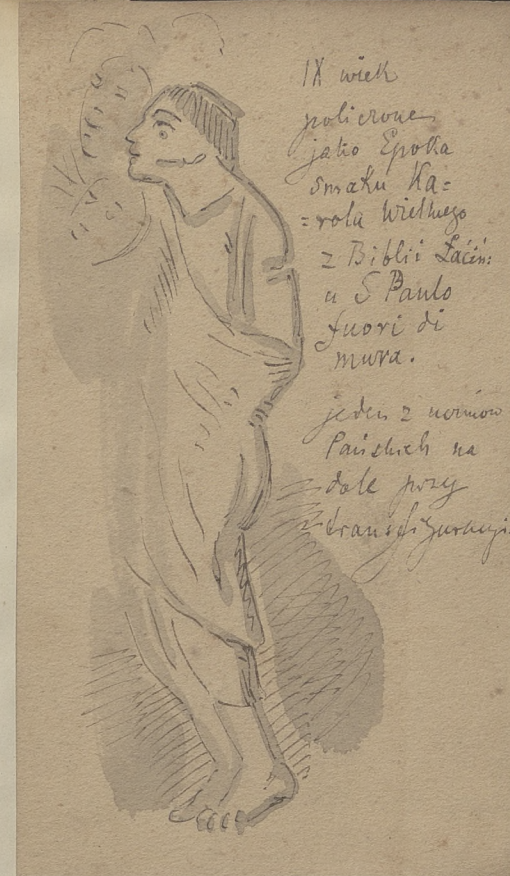 IX wiek
policzone
jako Epoka
smaku Ka=
=rola Wielkiego
z Biblii Łaciń:
u S Paulo
fuori di
mura.
jeden z uczniów
Pańskich na
dole przy
transfiguracji